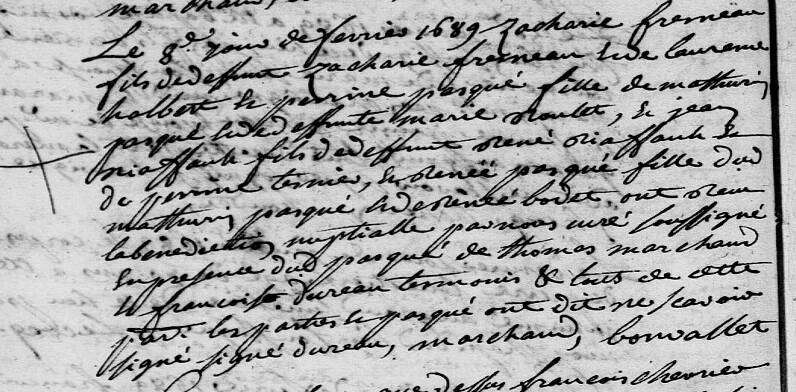 marchand
Le 8e jour de fevrier 1689 Zacharie fremeau
fils de deffunt Zacharie fremeau & de laurence
halbert & perrine pasqué fille de mathurin
pasqué & de deffunte marie noulet, & jean
riaffault fils de deffunt rené riaffault &
de perrine ternie, & reneé pasqué fille dud
mathurin pasqué & de reneé bodet ont receu
la benediction nuptialle par nous curé soussigné
en presence dud pasqué de thomas marchand
& francois dureau temouis & tous de cette
par: les parties & pasqué ont dit ne scavoir
signé signé dureau, marchand, bonvallet
que dessus francois chevrier